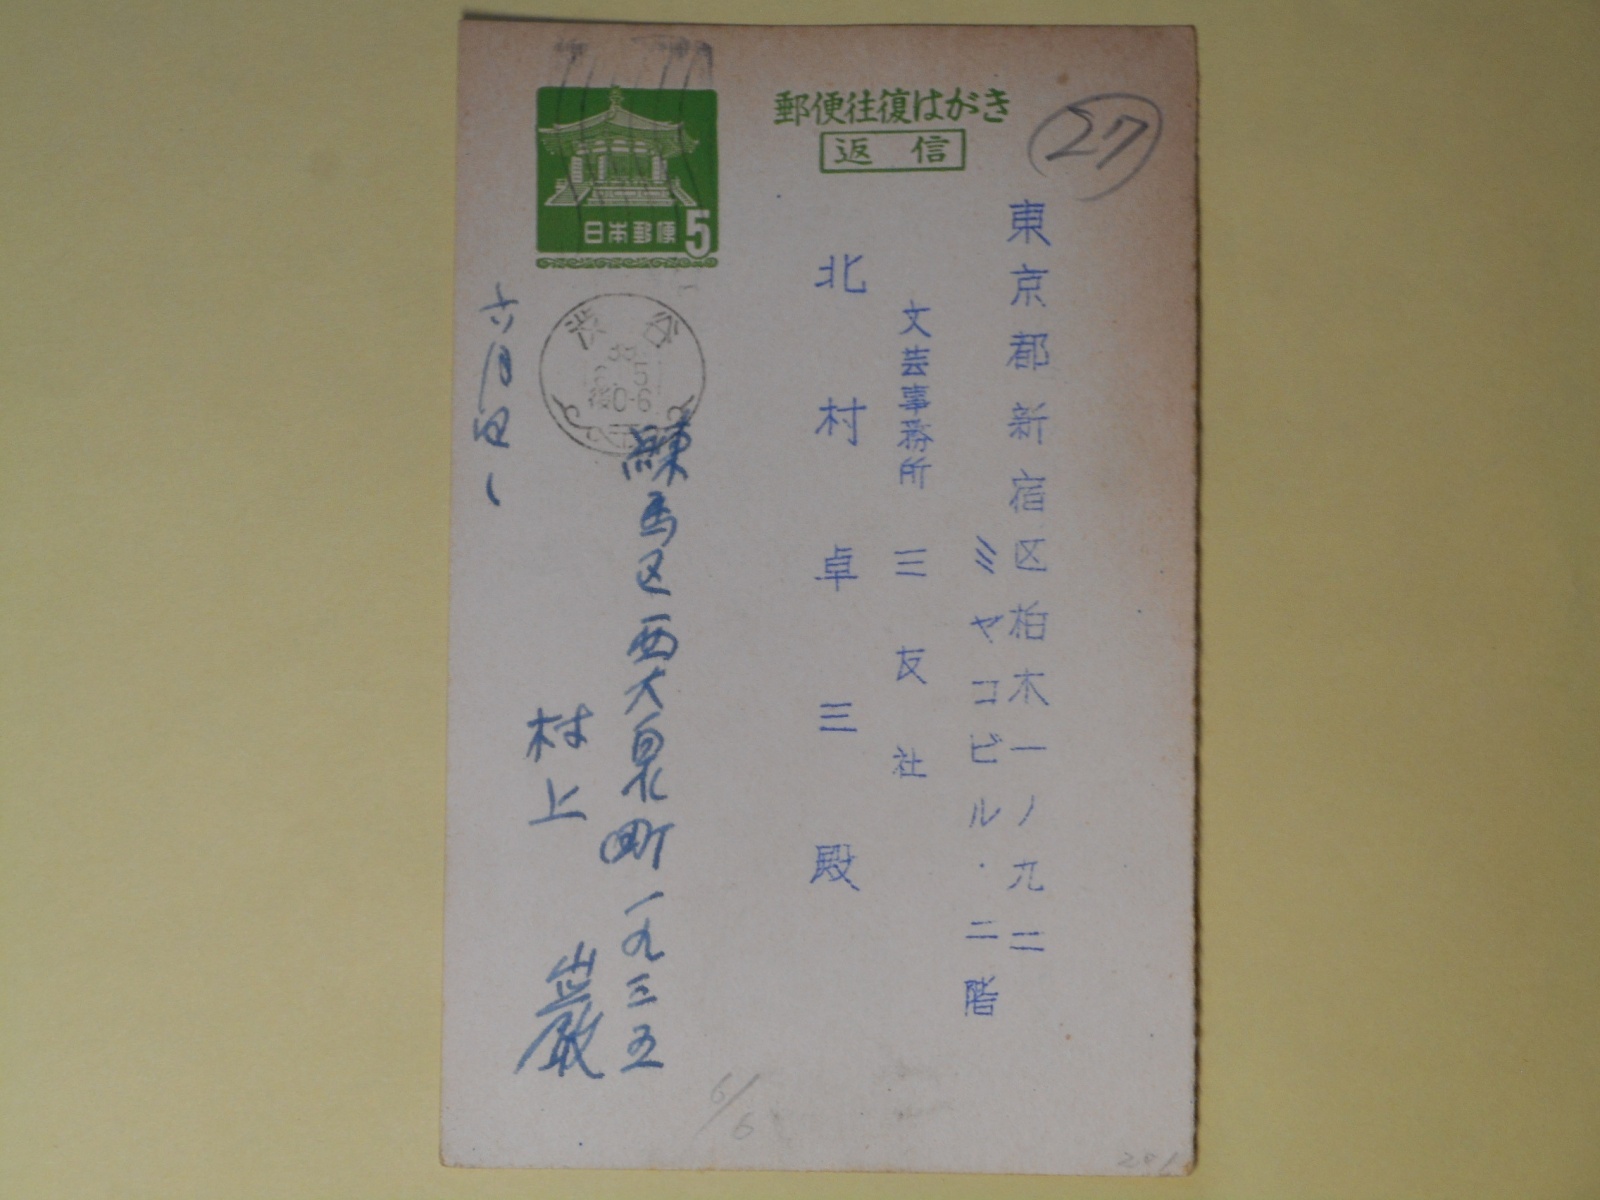 郵便往復はがき
返信
27
日本郵便 5
東京都新宿区柏木一ノ九二
ミヤコビル・二階
文芸事務所 三友社
北村卓三殿
渋谷
6.5
後0-6
練馬区西大泉町一九三五
村上 巌
六月
6/6
201